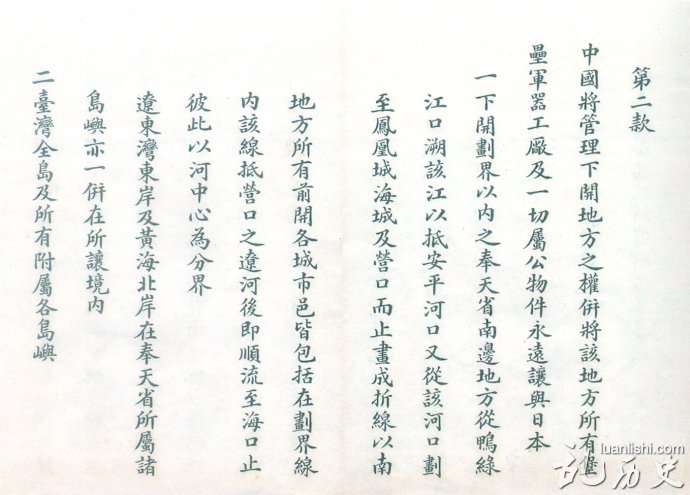 第二款
中國將管理下開地方之權併將該地方所有堡
壘軍器工廠及一切屬公物件永遠讓與日本
一下開劃界以內之奉天省南邊地方從鴨綠
江口溯該江以抵安平河口又從該河口劃
至鳳凰城海城及營口而止畫成折線以南
地方所有前開各城市邑皆包括在劃界線
內該線抵營口之遼河後即順流至海口止
彼此以河中心為分界
遼東灣東岸及黃海北岸在奉天省所屬諸
島嶼亦一併在所讓境內
二臺灣全島及所有附屬各島嶼
luanlishi.com
記历史